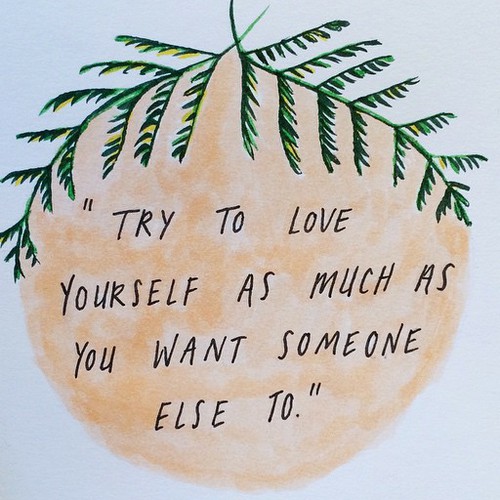 "TRY TO LOVE
YOURSELF AS MUCH AS
YOU WANT SOMEONE
ELSE TO."